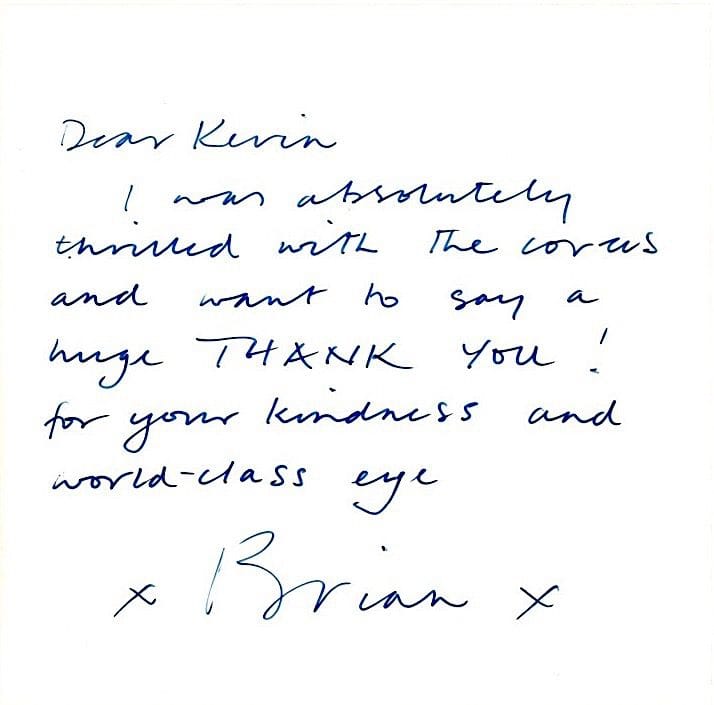 Dear Kevin
I was absolutely
thrilled with the covers
and want to say a
huge THANK YOU!
for your kindness and
world-class eye
x Brian x